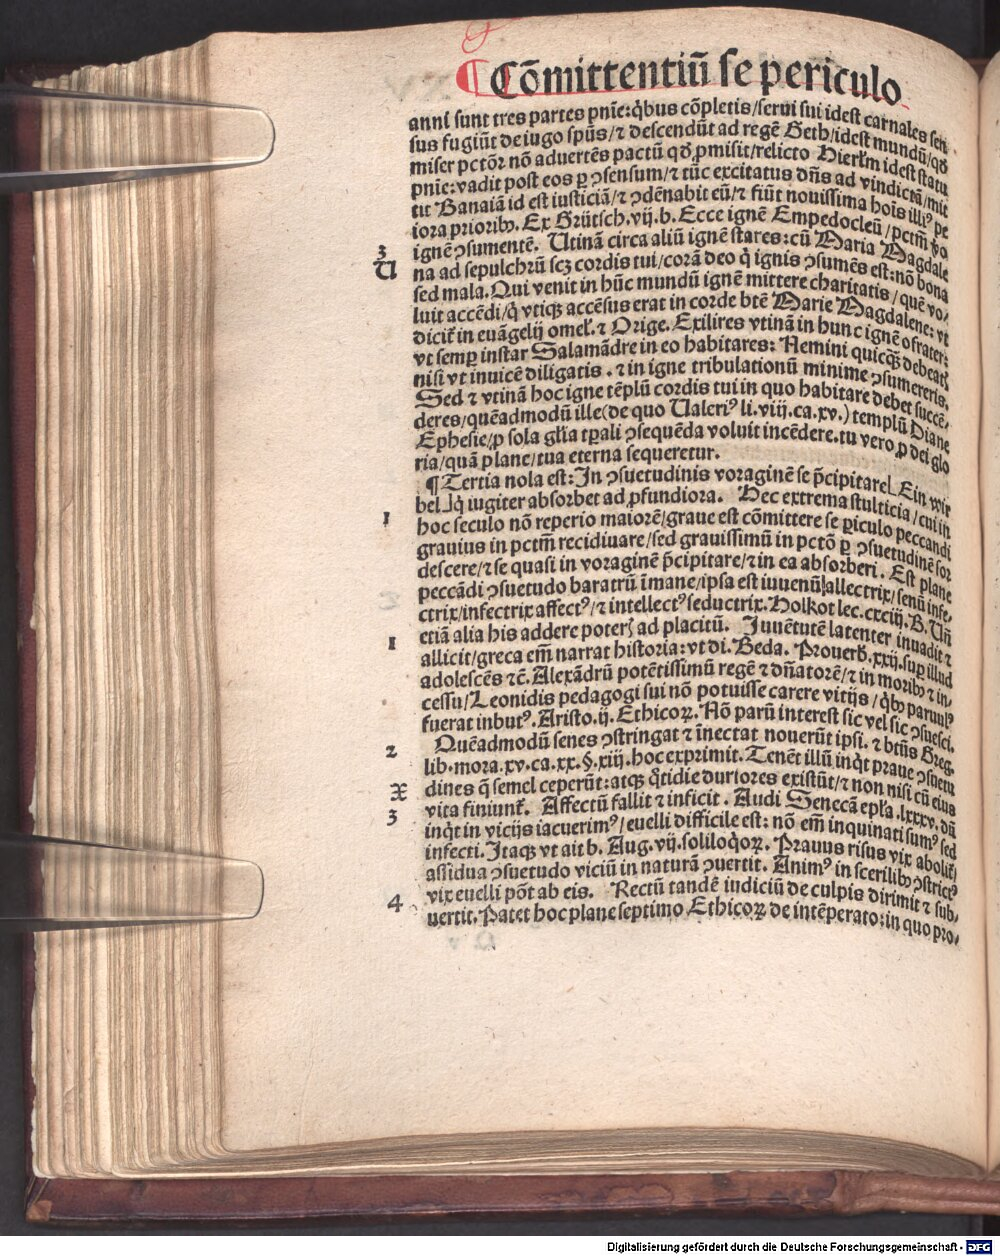 ¶ Cōmittentiū se periculo
anni sunt tres partes pnīe: q̇bus cōpletis/serui sui idest carnales sen
sus fugiūt de iugo spūs/⁊ descendūt ad regē Geth/idest mundū/qđ
miser pctōr nō aduertēs pactū qđ ꝓmisit/relicto Hierl̄m idest statu
pnīe: vadit post eos ꝑ ꝯsensum/⁊ tūc excitatus dn̄s ad vindictā/mit
tit Banaiā id est iusticiā/⁊ ꝯdēnabit eū/⁊ fiūt nouissima hoīs illiꝰ pe
iora priorib⁹. Ex Grütsch.vij.b. Ecce ignē Empedocleū/pctm̄
ignē ꝯsumentē. Utinā circa aliū ignē stares: cū Maria Magdale
3
U
na ad sepulchrū scz cordis tui/corā deo q̇ ignis ꝯsumēs est: nō bona
sed mala. Qui venit in hūc mundū ignē mittere charitatis/quē vo/
luit accēdi/q̇ vtiqꝫ accēsus erat in corde btē Marie Magdalene: vt
dicit̄ in euāgelij omel̄. ⁊ Orige. Exilires vtinā in hunc ignē o frater:
vt semꝑ instar Salamādre in eo habitares: Nemini quicqꝫ debeat⸗
nisi vt inuicē diligatis. ⁊ in igne tribulationū minime ꝯsumereris.
Sed ⁊ vtinā hoc igne tēplū cordis tui in quo habitare debet succē/
deres/quēadmodū ille (de quo Ualeriꝰ li.viij.ca.xv.) templū Diane
Ephesie/ꝓ sola gl̄ia tꝑali ꝯsequēda voluit incēdere. tu vero ꝓ dei glo
ria/quā plane/tua eterna sequeretur.
¶ Tertia nola est: In ꝯsuetudinis voraginē se p̄cipitare [Ein wir
bel] q̇ iugiter absorbet ad ꝓfundiora. Hec extrema stulticia/cui in
1
hoc seculo nō reperio maiorē/graue est cōmittere se ꝑiculo peccandi
grauius in pctm̄ recidiuare/sed grauissimū in pctō ꝑ ꝯsuetudinē sor
descere/⁊ se quasi in voraginē p̄cipitare/⁊ in ea absorberi. Est plane
peccādi ꝯsuetudo baratrū īmane/ipsa est iuuenū allectrix/senū infe/
ctrix/infectrix affectꝰ/⁊ intellectꝰ seductrix. Holkot lec.cxciij.B. Un̄
etiā alia his addere poter⸗ ad placitū. Juuētutē latenter inuadit ⁊
1
allicit/greca em̄ narrat historia: vt di. Beda. Prouerb̄.xxij.suꝑ illud
adolescēs ⁊c̄. Alexādrū potētissimū regē ⁊ dn̄atorē/⁊ in morib⁹ ⁊ in/
cessu/Leonidis pedagogi sui nō potuisse carere vitijs/q̇b⁹ paruulꝰ
fuerat inbutꝰ. Aristo.ij. Ethicoꝝ. Nō parū interest sic vel sic ꝯsuesci.
Quēadmodū senes ꝯstringat ⁊ īnectat nouerūt ipsi. ⁊ btūs Greg.
2
lib.mora.xv.ca.xx.§.xiij.hoc exprimit. Tenēt illū inq̇t praue ꝯsuetu
dines q̄ semel ceperūt: atqꝫ q̇tidie duriores existūt/⁊ non nisi cū eius
X
vita finiunt̄. Affectū fallit ⁊ inficit. Audi Senecā epl̄a.lxxxv. dū
3
inq̇t in vicijs iacuerimꝰ/euelli difficile est: nō em̄ inquinati sumꝰ sed
infecti. Itaqꝫ vt ait b. Aug.vij.soliloq̇oꝝ. Prauus risus vix abolit̄/
assidua ꝯsuetudo viciū in naturā ꝯuertit. Animꝰ in scerilib⁹ ꝯstrictꝰ
vix euelli pōt ab eis. Rectū tandē iudiciū de culpis dirimit ⁊ sub/
4
uertit. Patet hoc plane septimo Ethicoꝝ de intēperato: in quo pro/
Digitalisierung gefördert durch die Deutsche Forschungsgemeinschaft - DFG